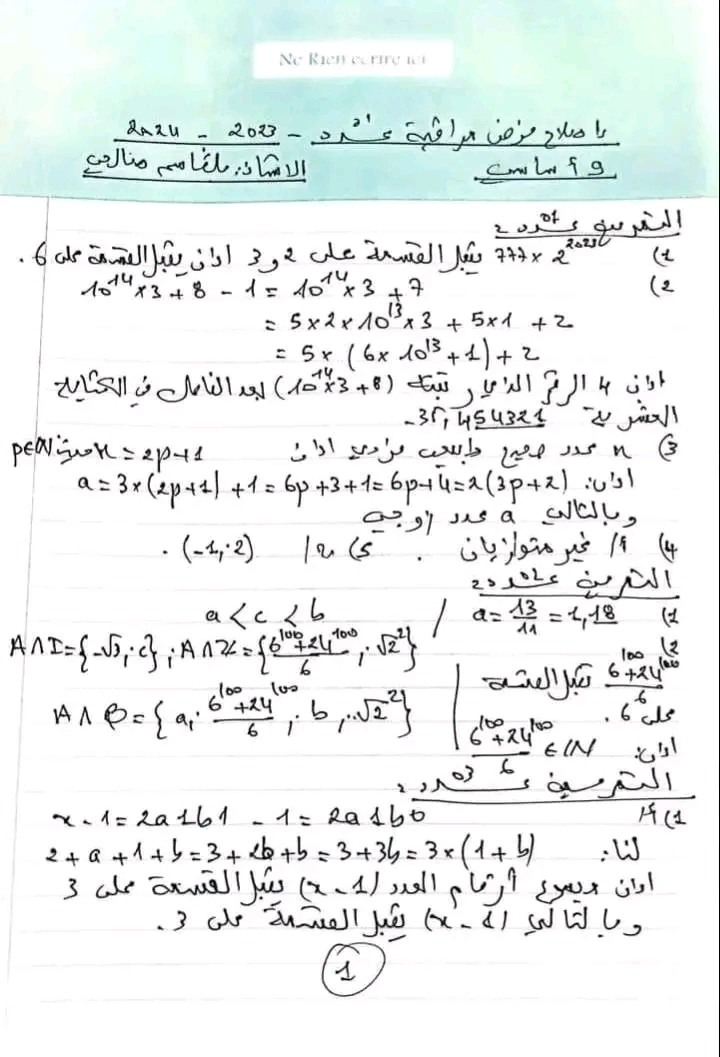 Ne Rien ecrire ici
إصلاح فرض مراقبة عدد 01 - 2023 - 2024
9 أساسي الأستاذ: بلقاسم
التمرين عدد 01:
1) 777 × 2^2023 يقبل القسمة على 2 و 3 اذن يقبل القسمة على 6.
2) 10^14×3+8 - 1 = 10^14×3 +7
= 5×2×10^13×3 + 5×1 +2
= 5×(6×10^13+1)+2
اذن 4 الرقم الذي رتبته (10^14×3+8) بعد الفاصل في الكتابة
العشرية 35,454321.
3) n عدد صحيح طبيعي فردي اذن n=2p+1 حيث p∈IN
اذن: a=3×(2p+1)+1=6p+3+1=6p+4=2(3p+2)
وبالتالي a عدد زوجي
4) أ/ غير متوازيان . ب/ (-1,2) .
التمرين عدد 02:
1) a=13/11=1,18 / a<c<b
2) (6^100+24^100)/6 A∩I={-√3;c} ; A∩Z={(6^100+24^100)/6 ; √2^2}
تقبل القسمة
على 6. A∩B={a; (6^100+24^100)/6 ; b ; √2^2}
اذن: (6^100+24^100)/6 ∈IN
التمرين عدد 03:
1) أ/ x-1=2a1b1 - 1=2a1b0
لنا: 2+a+1+b=3+2b+b=3+3b=3×(1+b)
اذن مجموع أرقام العدد (x-1) يقبل القسمة على 3
وبالتالي (x-1) يقبل القسمة على 3.
1